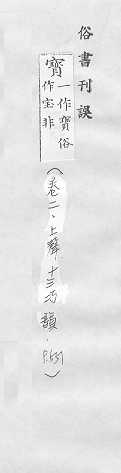 俗書刊誤
寳一作寶俗
作宝非
(卷二·上聲·十三巧韻·P.551)